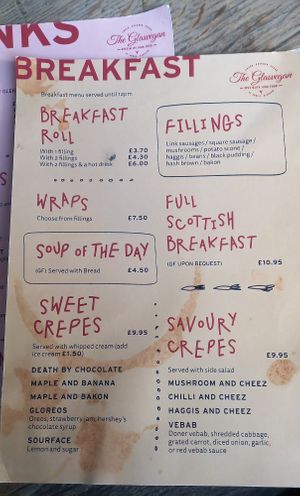 NKS
The Glasvegan
BREAKFAST
The Glasvegan
Breakfast menu served until 12pm
BREAKFAST
ROLL
With 1 filling £3.70
With 2 fillings £4.30
With 2 fillings & a hot drink £6.00
FILLINGS
Link sausages / square sausage /
mushrooms / potato scone /
haggis / beans / black pudding /
hash brown / bakon
WRAPS
Choose from fillings £7.50
FULL
SCOTTISH
BREAKFAST
(GF UPON REQUEST) £10.95
SOUP OF THE DAY
(GF) Served with Bread £4.50
SWEET
CREPES
£9.95
Served with whipped cream (add
ice cream £1.50)
DEATH BY CHOCOLATE
MAPLE AND BANANA
MAPLE AND BAKON
GLOREOS
Oreos, strawberry jam, hershey's
chocolate syrup
SOURFACE
Lemon and sugar
SAVOURY
CREPES
£9.95
Served with side salad
MUSHROOM AND CHEEZ
CHILLI AND CHEEZ
HAGGIS AND CHEEZ
VEBAB
Doner vebab, shredded cabbage,
grated carrot, diced onion, garlic,
or red vebab sauce